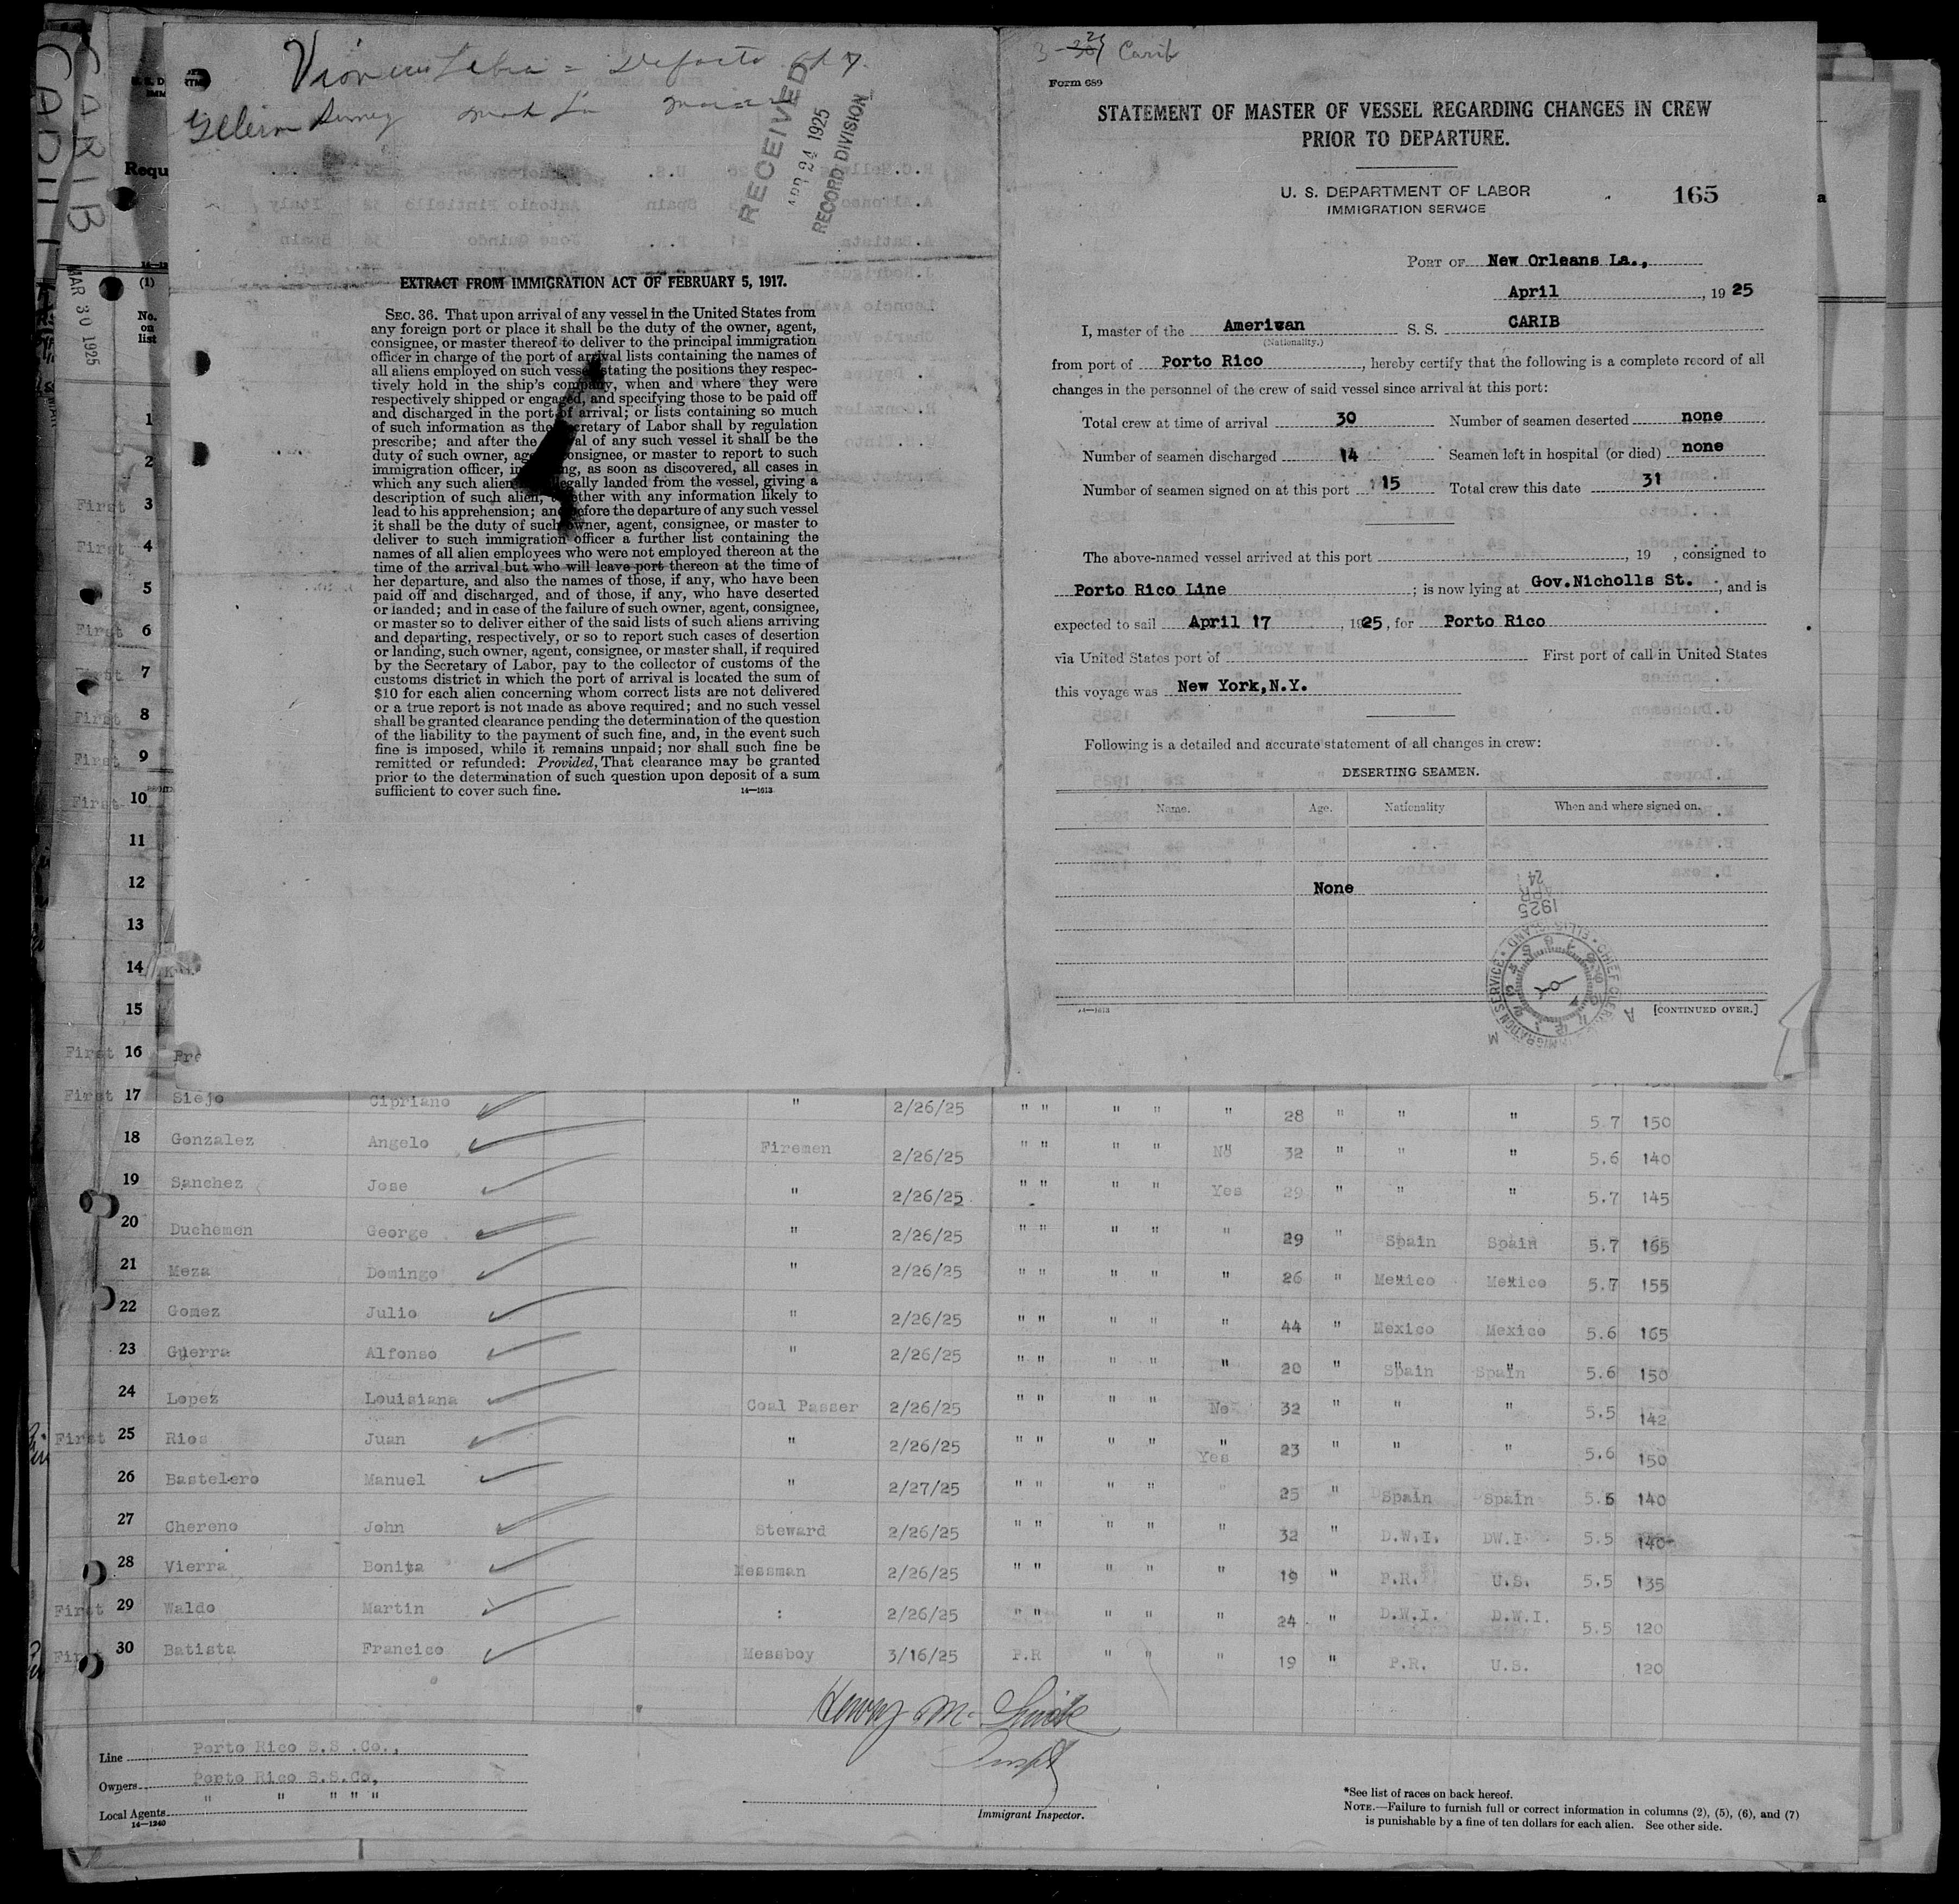 CARIB
MAR 30 1925
Requ
(1)
No.
on
list
RECEIVED
APR 24 1925
RECORD DIVISION
EXTRACT FROM IMMIGRATION ACT OF FEBRUARY 5, 1917.
SEC. 36. That upon arrival of any vessel in the United States from
any foreign port or place it shall be the duty of the owner, agent,
consignee, or master thereof to deliver to the principal immigration
officer in charge of the port of arrival lists containing the names of
all aliens employed on such vessel stating the positions they respec-
tively hold in the ship's company, when and where they were
respectively shipped or engaged, and specifying those to be paid off
and discharged in the port of arrival; or lists containing so much
of such information as the cretary of Labor shall by regulation
prescribe; and after the al of any such vessel it shall be the
duty of such owner, ag onsignee, or master to report to such
immigration officer, in ng, as soon as discovered, all cases in
which any such alien egally landed from the vessel, giving a
description of such alien, together with any information likely to
lead to his apprehension; and before the departure of any such vessel
it shall be the duty of such owner, agent, consignee, or master to
deliver to such immigration officer a further list containing the
names of all alien employees who were not employed thereon at the
time of the arrival but who will leave port thereon at the time of
her departure, and also the names of those, if any, who have been
paid off and discharged, and of those, if any, who have deserted
or landed; and in case of the failure of such owner, agent, consignee,
or master so to deliver either of the said lists of such aliens arriving
and departing, respectively, or so to report such cases of desertion
or landing, such owner, agent, consignee, or master shall, if required
by the Secretary of Labor, pay to the collector of customs of the
customs district in which the port of arrival is located the sum of
$10 for each alien concerning whom correct lists are not delivered
or a true report is not made as above required; and no such vessel
shall be granted clearance pending the determination of the question
of the liability to the payment of such fine, and, in the event such
fine is imposed, while it remains unpaid; nor shall such fine be
remitted or refunded: Provided, That clearance may be granted
prior to the determination of such question upon deposit of a sum
sufficient to cover such fine. 14—1613
Carib
Form 689
STATEMENT OF MASTER OF VESSEL REGARDING CHANGES IN CREW
PRIOR TO DEPARTURE.
U. S. DEPARTMENT OF LABOR
IMMIGRATION SERVICE
165
PORT OF New Orleans La.,
April , 1925
I, master of the Ameriwan S. S. CARIB
(Nationality.)
from port of Porto Rico , hereby certify that the following is a complete record of all
changes in the personnel of the crew of said vessel since arrival at this port:
Total crew at time of arrival 30 Number of seamen deserted none
Number of seamen discharged 14 Seamen left in hospital (or died) none
Number of seamen signed on at this port 15 Total crew this date 31
The above-named vessel arrived at this port , 19 , consigned to
Porto Rico Line ; is now lying at Gov.Nicholls St. , and is
expected to sail April 17 , 1925, for Porto Rico
via United States port of First port of call in United States
this voyage was New York,N.Y.
Following is a detailed and accurate statement of all changes in crew:
DESERTING SEAMEN.
Name. Age. Nationality When and where signed on.
None
APR 24 1925
[CONTINUED OVER.]
14—1613
1
2
First 3
First 4
First 5
First 6
First 7
First 8
First 9
First 10
11
12
13
14
15
First 16
First 17 Siejo Cipriano " 2/26/25 " " " " " 28 " " " 5.7 150
18 Gonzalez Angelo Firemen 2/26/25 " " " " No 32 " " " 5.6 140
19 Sanchez Jose " 2/26/25 " " " " Yes 29 " " " 5.7 145
20 Duchemen George " 2/26/25 " " " " " 29 " Spain Spain 5.7 165
21 Meza Domingo " 2/26/25 " " " " " 26 " Mexico Mexico 5.7 155
22 Gomez Julio " 2/26/25 " " " " " 44 " Mexico Mexico 5.6 165
23 Guerra Alfonso " 2/26/25 " " " " " 20 " Spain Spain 5.6 150
24 Lopez Louisiana Coal Passer 2/26/25 " " " " No 32 " " " 5.5 142
First 25 Rios Juan " 2/26/25 " " " " Yes 23 " " " 5.6 150
26 Bastelero Manuel " 2/27/25 " " " " " 25 " Spain Spain 5.6 140
27 Chereno John Steward 2/26/25 " " " " " 32 " D.W.I. DW.I 5.5 140
28 Vierra Bonita Messman 2/26/25 " " " " " 19 " P.R. U.S. 5.5 135
First 29 Waldo Martin : 2/26/25 " " " " " 24 " D.W.I. D.W.I. 5.5 120
First 30 Batista Francico Messboy 3/16/25 P.R " " " 19 " P.R. U.S. 120
Line Porto Rico S.S .Co.,
Owners Porto Rico S.S.Co,
Local Agents " " " " "
14—1240
Immigrant Inspector.
*See list of races on back hereof.
NOTE.—Failure to furnish full or correct information in columns (2), (5), (6), and (7)
is punishable by a fine of ten dollars for each alien. See other side.